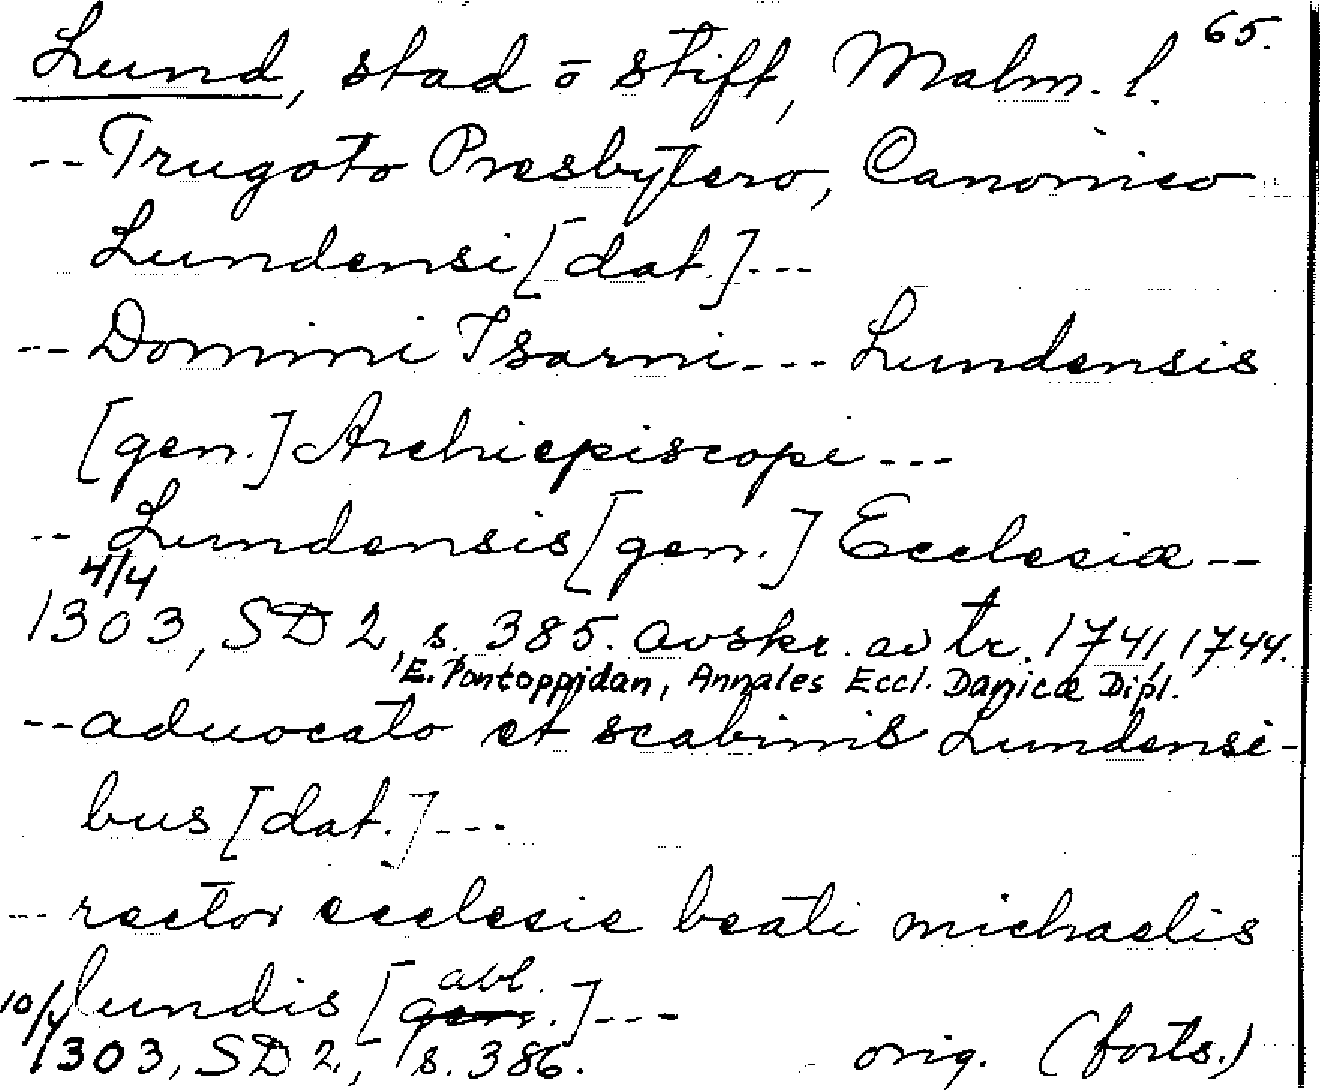 65.
Lund, stad o stift, Malm. l.
-- Trugoto Presbytero, Canonico
Lundensi [dat.] ---
-- Domini Isarni --- Lundensis
[gen.] Archiepiscopi ---
-- Lundensis [gen.] Ecclesiæ --
4/4
1303, SD 2, s. 385. avskr. av tr. 1741, 1744.
E. Pontoppidan, Annales Eccl. Danicæ Dipl.
-- aduocato et scabinis Lundensi-
bus [dat.] ---
-- rector ecclesie beati michaelis
lundis [gen. abl.] ---
10/4
1303, SD 2, s. 386. orig. (forts.)